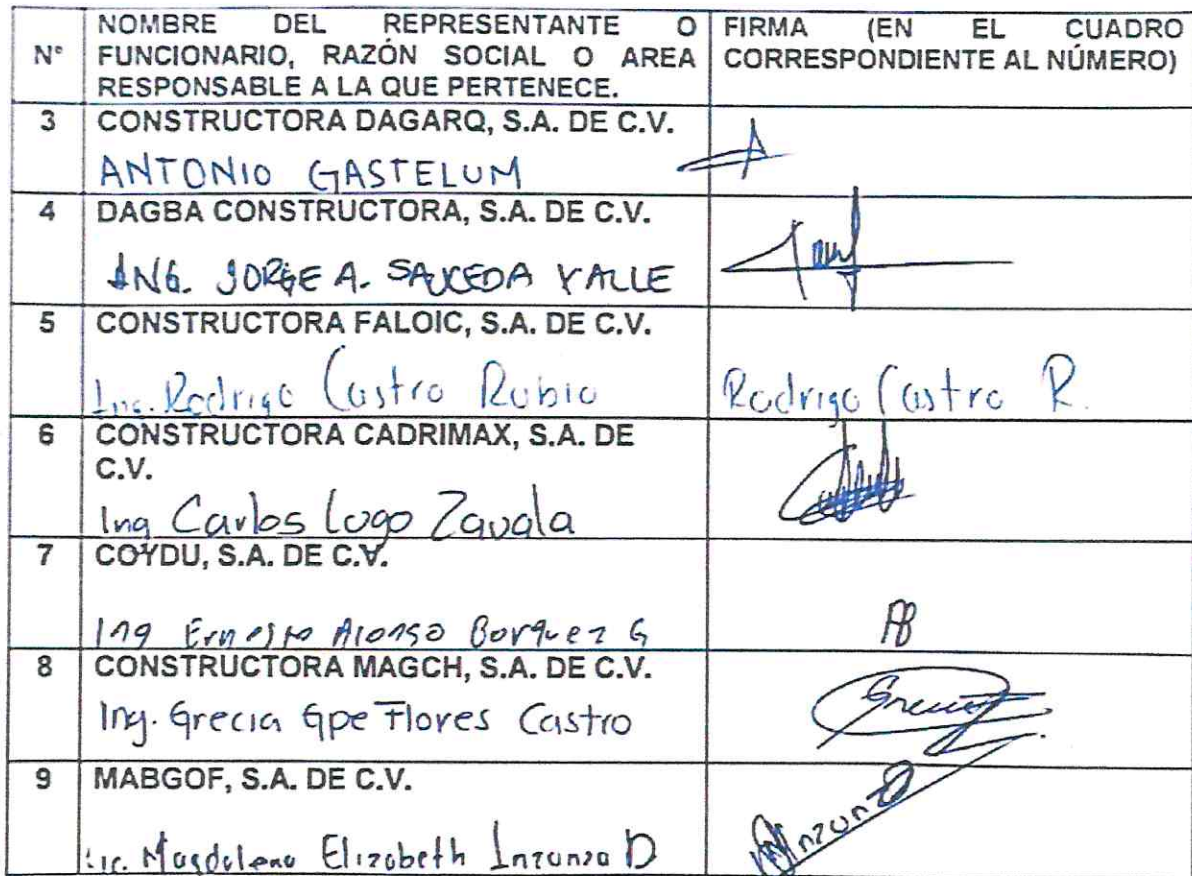 N° NOMBRE DEL REPRESENTANTE O FUNCIONARIO, RAZÓN SOCIAL O AREA RESPONSABLE A LA QUE PERTENECE. FIRMA (EN EL CUADRO CORRESPONDIENTE AL NÚMERO)
3 CONSTRUCTORA DAGARQ, S.A. DE C.V.
ANTONIO GASTELUM
4 DAGBA CONSTRUCTORA, S.A. DE C.V.
ING. JORGE A. SAUCEDA VALLE
5 CONSTRUCTORA FALOIC, S.A. DE C.V.
Ing. Rodrigo Castro Rubio Rodrigo Castro R.
6 CONSTRUCTORA CADRIMAX, S.A. DE
C.V.
Ing Carlos Lugo Zavala
7 COYDU, S.A. DE C.V.
Ing Ernesto Alonso Borquez G
8 CONSTRUCTORA MAGCH, S.A. DE C.V.
Ing. Grecia Gpe Flores Castro
9 MABGOF, S.A. DE C.V.
Lic. Magdalena Elizabeth Inzunza D